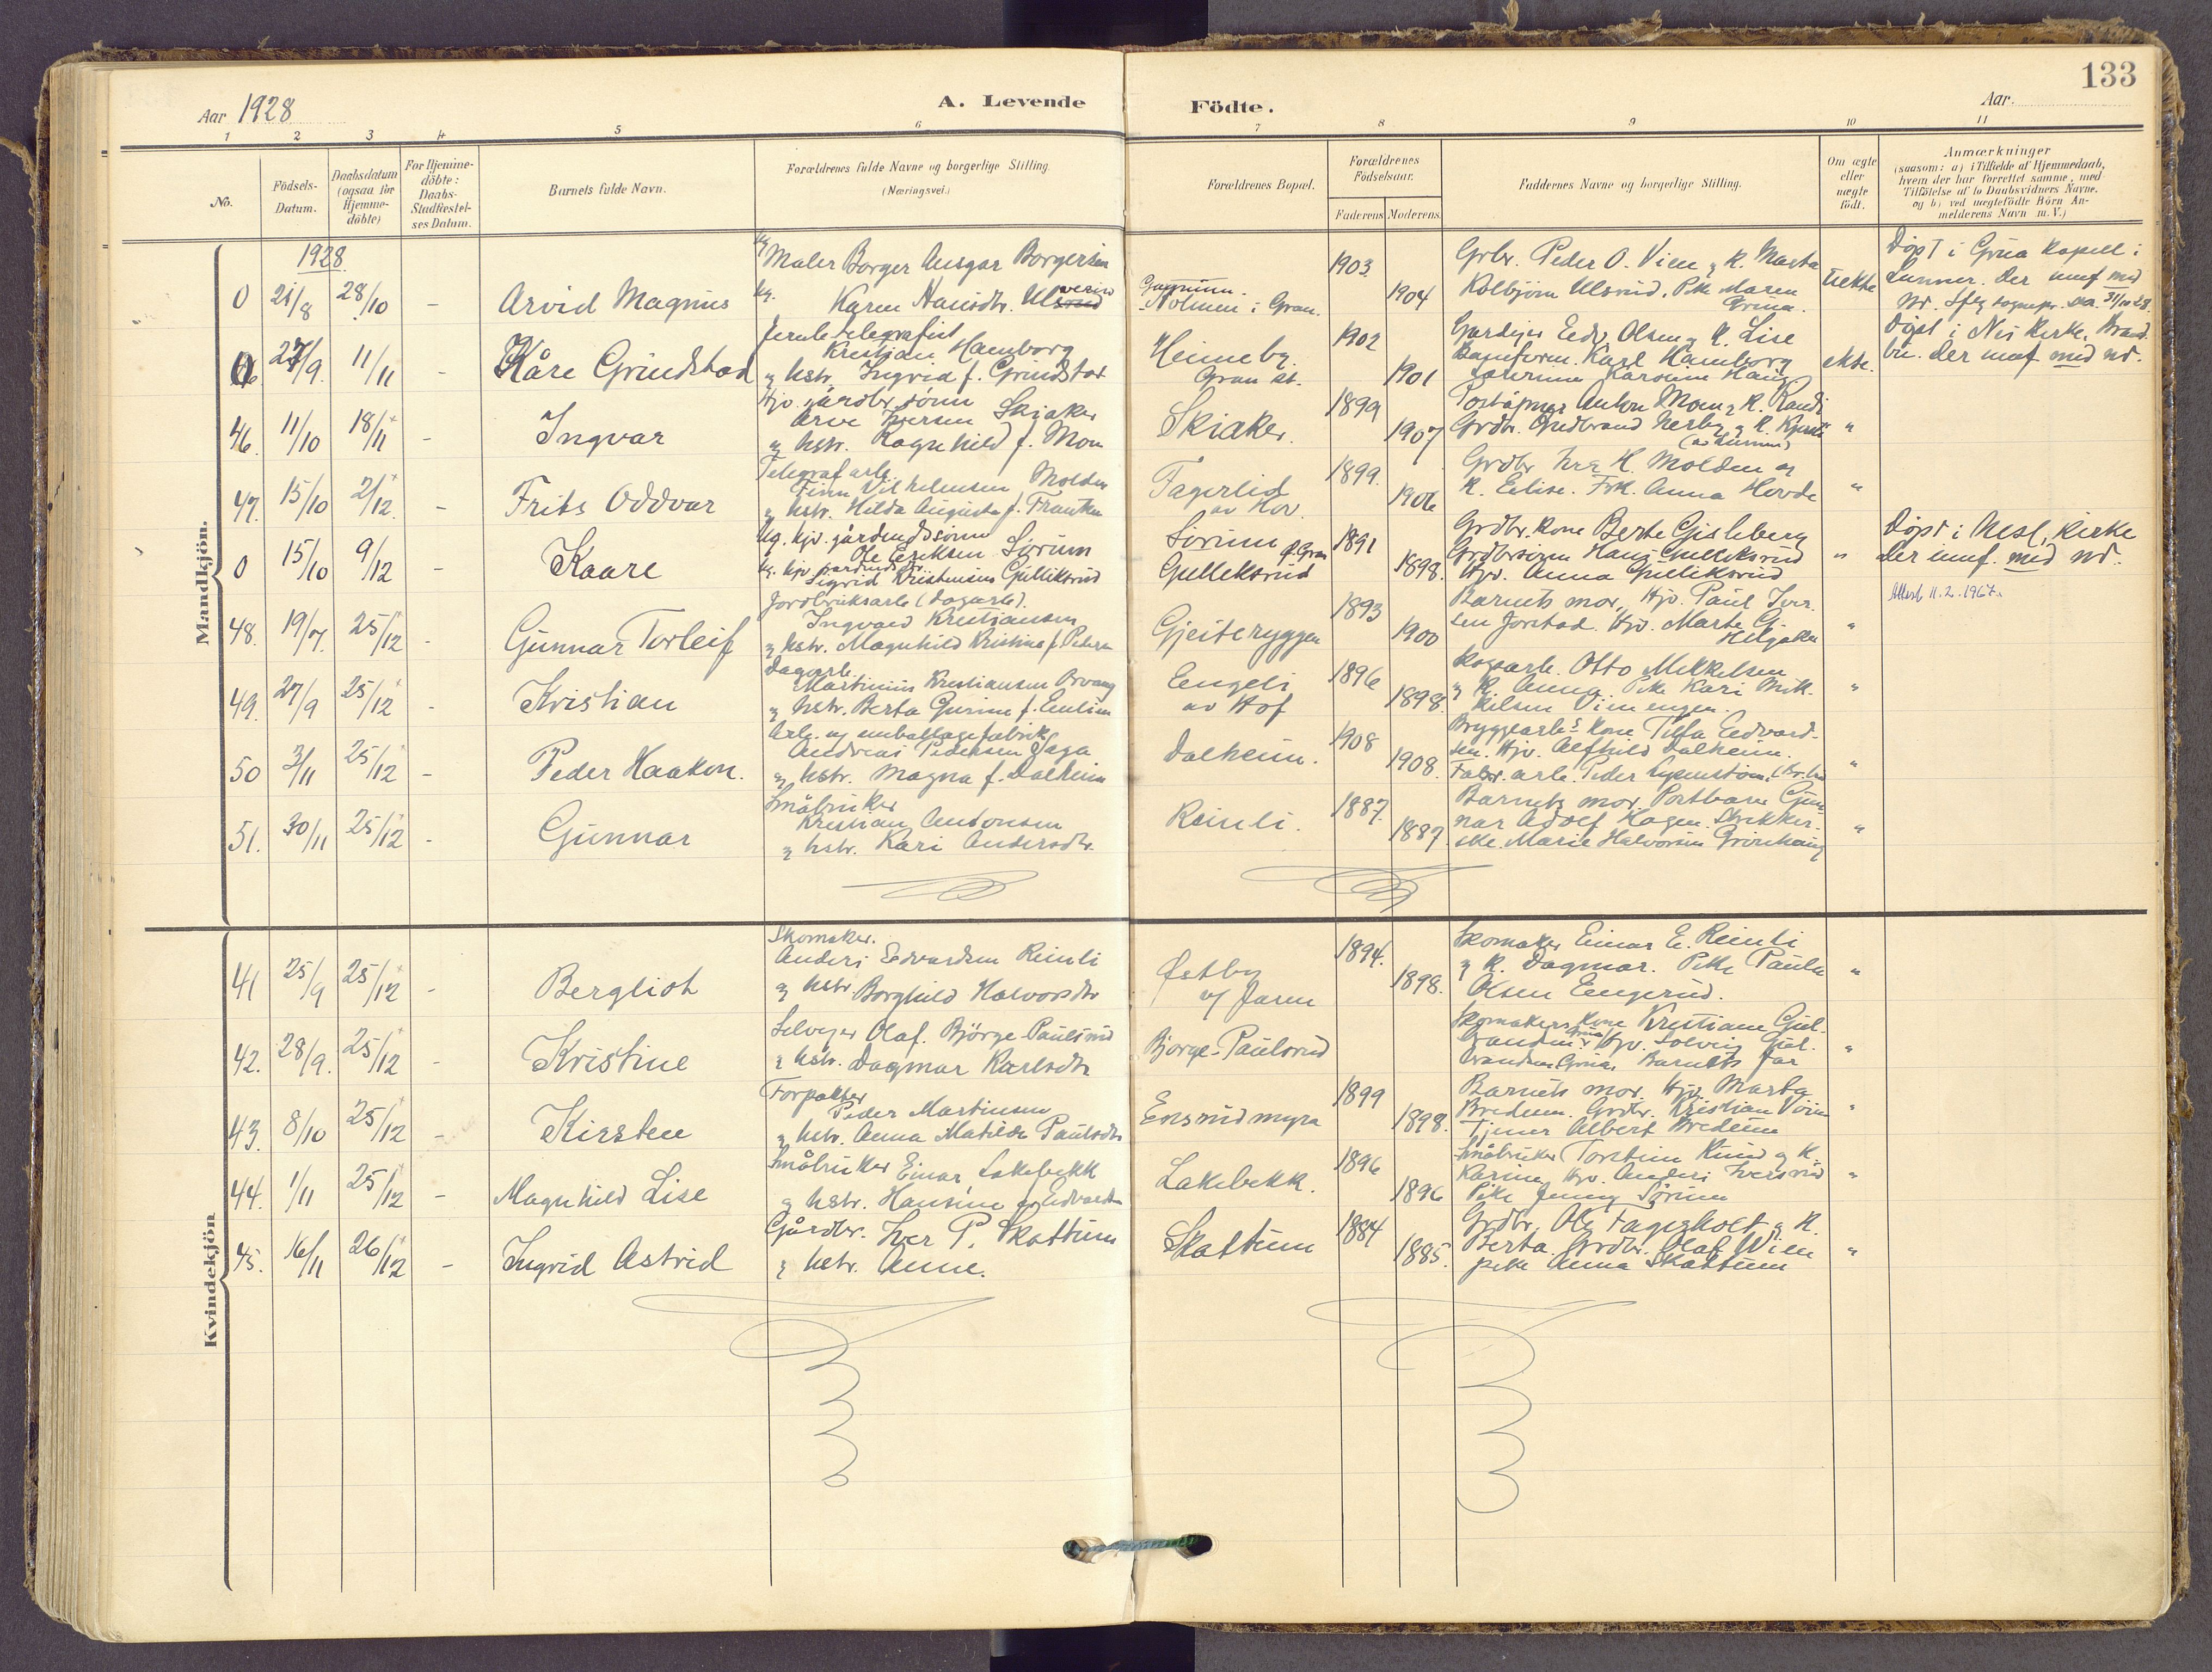 133
Aar 1928
A. Levende
Födte.
Aar.
1 2 3 4 5 6 7 8 9 10 11
No.
Födsels-
Datum.
Daabsdatum
(ogsaa for
Hjemme-
döbte)
For Hjemme-
döbte:
Daabs-
Stadfæstel-
ses Datum.
Barnets fulde Navn.
Forældrenes fulde Navne og borgerlige Stilling
(Næringsvei.)
Forældrenes Bopæl.
Forældrenes
Födselsaar.
Faderens
Moderens.
Faddernes Navne og borgerlige Stilling.
Om ægte
eller
uægte
födt.
Anmærkninger
(saasom: a) i Tilfælde af Hjemmedaab,
hvem der har forrettet samme, med
Tilföielse af to Daabsvidners Navne.
og b) ved uægtefödte Börn An-
melderens Navn m.V.)
Mandkjön.
1928
0 21/8 28/10 - Arvid Magnus
Maler Borger Ansgar Borgersen
ug. Karen Hansdtr.
Holmen i Gran.
1903
1904
Grbr. Peder O. Vien & K. Marta
Kolbjörn Ulsrud. Pike Maren
Grua.
Uekte
Döpt i Grua Kapell i
Lunner. Der innf med
nr.
0 27/9 11/11 - Kåre Grindstad
Jernb. telegrafist
Kristian Hamborg
& hstr. Ingrid f. Grindstad
Heimeby
Gran st.
1902
1901
Gardejer Edv. Olsen & K. Lise
Baneform. Karl Hamborg
Karoline Haug
ekte.
Döpt i Nes Kirke, Brand-
bu. Der innf med nr.
46. 11/10 18/11 - Ingvar
Hjv. gårdbr. sönn
Arve Iversen Skiaker
& hstr. Ragnhild f. Moen
Skiaker.
1899
1907
Anton Moen & K. Randi
Grdbr. Gudbrand Nerby & K. Kjersti
"
47. 15/10 2/12. - Frits Oddvar
Telegrafarb.
Finn Vilhelmsen Molden
& hstr. Hilda Augusta f.
Fagerlid
av Hov.
1899.
1906
Grdbr. H. Molden og
K. Elise. Frk. Anna Hovde
"
0 15/10 9/12 - Kaare
Ug. hjv. gårdmdssönn
Ole Eriksen Sörum
ug. hjv. gardmdsdtr.
Sigrid Kristensen Gulliksrud
Sörum
Gulleksrud
p. Gran
1891
1898.
Grdbr. kone Berte Gisleberg
Grdbrsönn Hans Gulleksrud
Hjv. Anna Gulliksrud
"
Döpt i Nesl. Kirke
der innf. med nr.
48. 19/7. 25/12 - Gunnar Torleif
Jordbruksarb (dagarb).
Ingvald Kristiansen
& hstr. Magnhild Kristine f. Pedersen
Gjeiteryggen
1893
1900
Barnets mor, Hjv. Paul Iver-
sen Jorstad. Hjv. Marte G.
Helgaker
"
Attest 11.2.1967.
49. 27/9 25/12 - Kristian
Dagarb.
Martinius Kristiansen Orvang
& hstr. Berta Gurine f. Emlien
Engeli
av Hof
1896
1898.
Skogsarb. Otto Mikkelsen
& K. Anna. Pike Kari Mik-
kelsen Vienengen.
"
50 3/11 25/12 - Peder Haakon.
Arb. og emballagefabrik
Andreas Pedersen Haga
& hstr. Magna f. Dalheim
Dalheim.
1908
1908.
Bryggearb.s kone Tilla Edvard-
sen. Hjv. Alfhild Dalheim.
Fabr. arb. Peder
"
51. 30/11 25/12 - Gunnar
Småbruker
Kristian Antonsen
& hstr. Kari Andersdtr.
Reinli.
1887.
1887.
Barnets mor. Postbærer Gun-
nar Adolf Hagen. Strykker-
ske. Marie Halvorsen Grönhaug
"
Kvindekjön
41 25/9 25/12 - Bergliot
Skomaker.
Anders Edvardsen Reinli
& hstr. Borghild Halvorsdtr
Østby
v/ Jaren
1894.
1898.
Skomaker Einar E. Reinli
& K. Dagmar. Pike Paula
Olsen Engerud.
"
42. 28/9. 25/12 - Kristine
Selveger Olaf. Björge-Paulsrud
& hstr. Dagmar Karlsdtr.
Björge-Paulsrud
Skomakers kone Kristiane Gul-
brandsen Hjv. Solveig Gul-
brandsen Grua. Barnets far
"
43. 8/10 25/12 - Kirsten
Forpakter
Peder Martinsen
& hstr. Anna Matilde Paulsdtr.
Ensrudmyra
1899
1898.
Barnets mor. Hjv. Marta
Bredeen. Grdbr. Kristian Vöien
Tjener Albert Bredeen
"
44. 1/11 25/12 - Magnhild Lise
Småbruker Einar Lakebekk
& hstr. Hansine f. Edvardsen
Lakebekk.
1896
1896
Småbruker Torstein Rund & K.
Karine. Hjv. Anders Iversrud
Pike Jenny Sörum
"
45. 16/11 26/12 - Ingrid Astrid
Gårdbr. Iver P. Skattum
& hstr. Anne.
Skattum
1884
1885.
Grdbr. Ole Fagerholt & K.
Berta. Grdbr. Olaf Wien
pike Anna Skattum
"